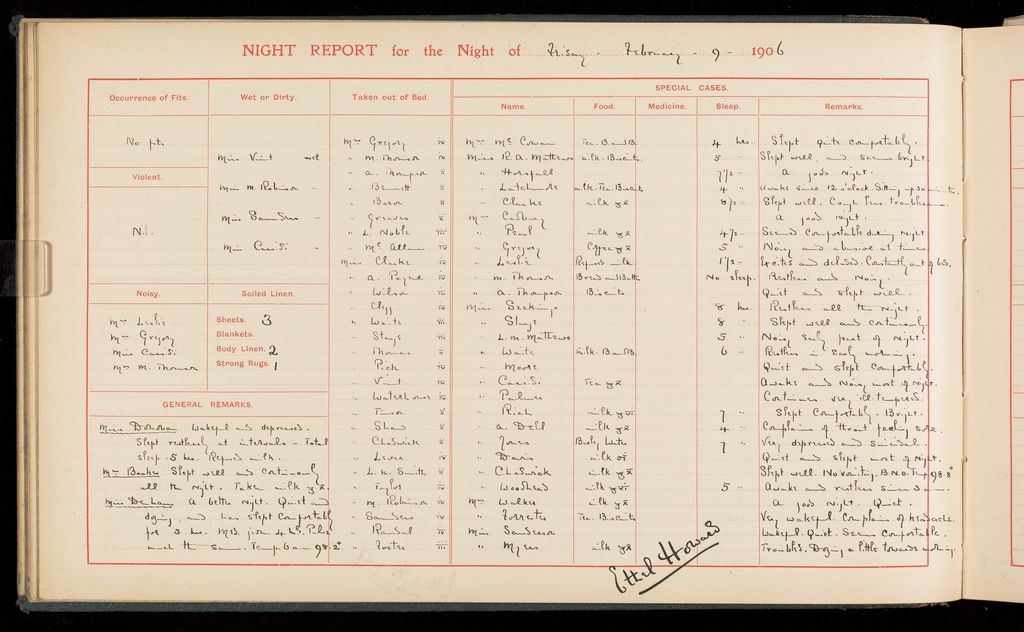 NIGHT REPORT for the Night of Friday February 9 1906
Occurrence of Fits.
No fits
Violent.
Nil.
Noisy.
Mrs Leslie
Mrs Gregory
Miss Cassidi
Mrs M. Thomson
Wet or Dirty.
Miss Vint wet
Miss M. Robinson "
Miss Saunders "
Miss Cassidi "
Soiled Linen.
Sheets. 3
Blankets.
Body Linen. 2
Strong Rugs. 1
GENERAL REMARKS.
Miss Donovan Wakeful and depressed.
Slept restlessly at intervals - Total
sleep - 5 hrs. Refused milk.
Mrs Barker Slept well and continuously
all the night. Taken milk
Miss Denham A better night. Quiet and
dozing, and has slept comfortably
for 3 hrs. Med. given 4 hrs. Pulse
much the same. Temp. 6 am 98.2°
Taken out of Bed.
Mrs Gregory
" M. Thomson
" A. Thompson
" Bennett
" Baron
" Greaves
" L. Noble
" Mc
Miss Clarke
" A. Payne
" Wilson
" Clegg
" Waite
" Stags
" Thomas
" Pick
" Vint
" Waterhouse
" Shaw
" Chadwick
" Lewis
" L. K. Smith
" Taylor
" M. Robinson
" Saunders
" Randal
" Foster
SPECIAL CASES.
Name. Food. Medicine. Sleep. Remarks.
Mrs McCowan Tea. B. and B. 4 hrs. Slept quite comfortably.
Miss R. A. Mathews milk. Biscuits 5 " Slept well, and seems bright.
" Horsfall 7½ " A good night.
" milk. Tea. Biscuits 4 " Awake since 12 o'clock. Sitting up
" Clarke milk 8½ " Slept well. Cough less troublesome.
Mrs A good night.
" Pearl milk 4½ " Seemed comfortable during night.
" Gregory Coffee 5 " Noisy and abusive at times
" Leslie Refused milk. 1½ " Excited and deluded. Constantly out of bed.
" M. Thomson Bread and Butter No sleep. Restless and Noisy.
" A. Thompson Biscuits Quiet and slept well.
Miss Seekings 8 hrs. Restless all the night.
" Stags 8 " Slept well and continuously.
" L. M. Mathews 5 " Noisy early part of night.
" Waite milk. B. and B. 6 " Restless in early morning.
" Moore Quiet and slept comfortably.
" Cassidi Tea Awake and Noisy most of night.
" Palmer Continues very ill-tempered.
" Rich milk 7 " Slept comfortably. Bright.
" A. Dell milk 4 " Complains of throat feeling sore.
" Jones Barley Water 7 " Very depressed and suicidal.
" Davis milk Quiet and slept most of night.
" Chadwick milk Slept well. No vomiting. B.N.O. Temp 98.8°
" Woodhead milk 5 " Awake and restless since 3 a.m.
Mrs Walker milk A good night. Quiet.
" Forrester Tea. Biscuits Very wakeful. Complains of headache.
Miss Sanderson Wakeful. Quiet. Seems comfortable.
" Myers milk Troubled. Dozing a little towards morning.
Ethel Howard